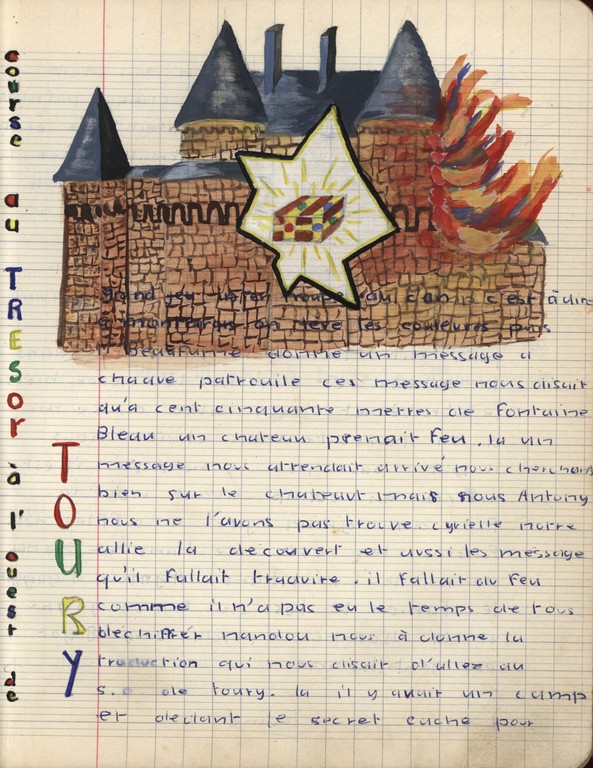 course au TRESOR à l'ouest de
TOURY
Grand jeu qui c'est à
on lève les couleures puis
donne un message a
chaque patrouile ces message nous disait
qu'a cent cinquante metres de Fontaine
Bleau un chateau prenait feu. la un
message nous attendait arrivé nous cherchons
bien sur le chateaut mais nous Antony
nous ne l'avons pas trouve. cyrielle notre
allie la decouvert et aussi les message
qu'il fallait traduire. il fallait du feu
comme il n'a pas eu le temps de tous
dechiffrér nanolou nous à donne la
traduction qui nous disait d'allez au
s.o de toury. la il y avait un camp
et dedant le secret cache pour